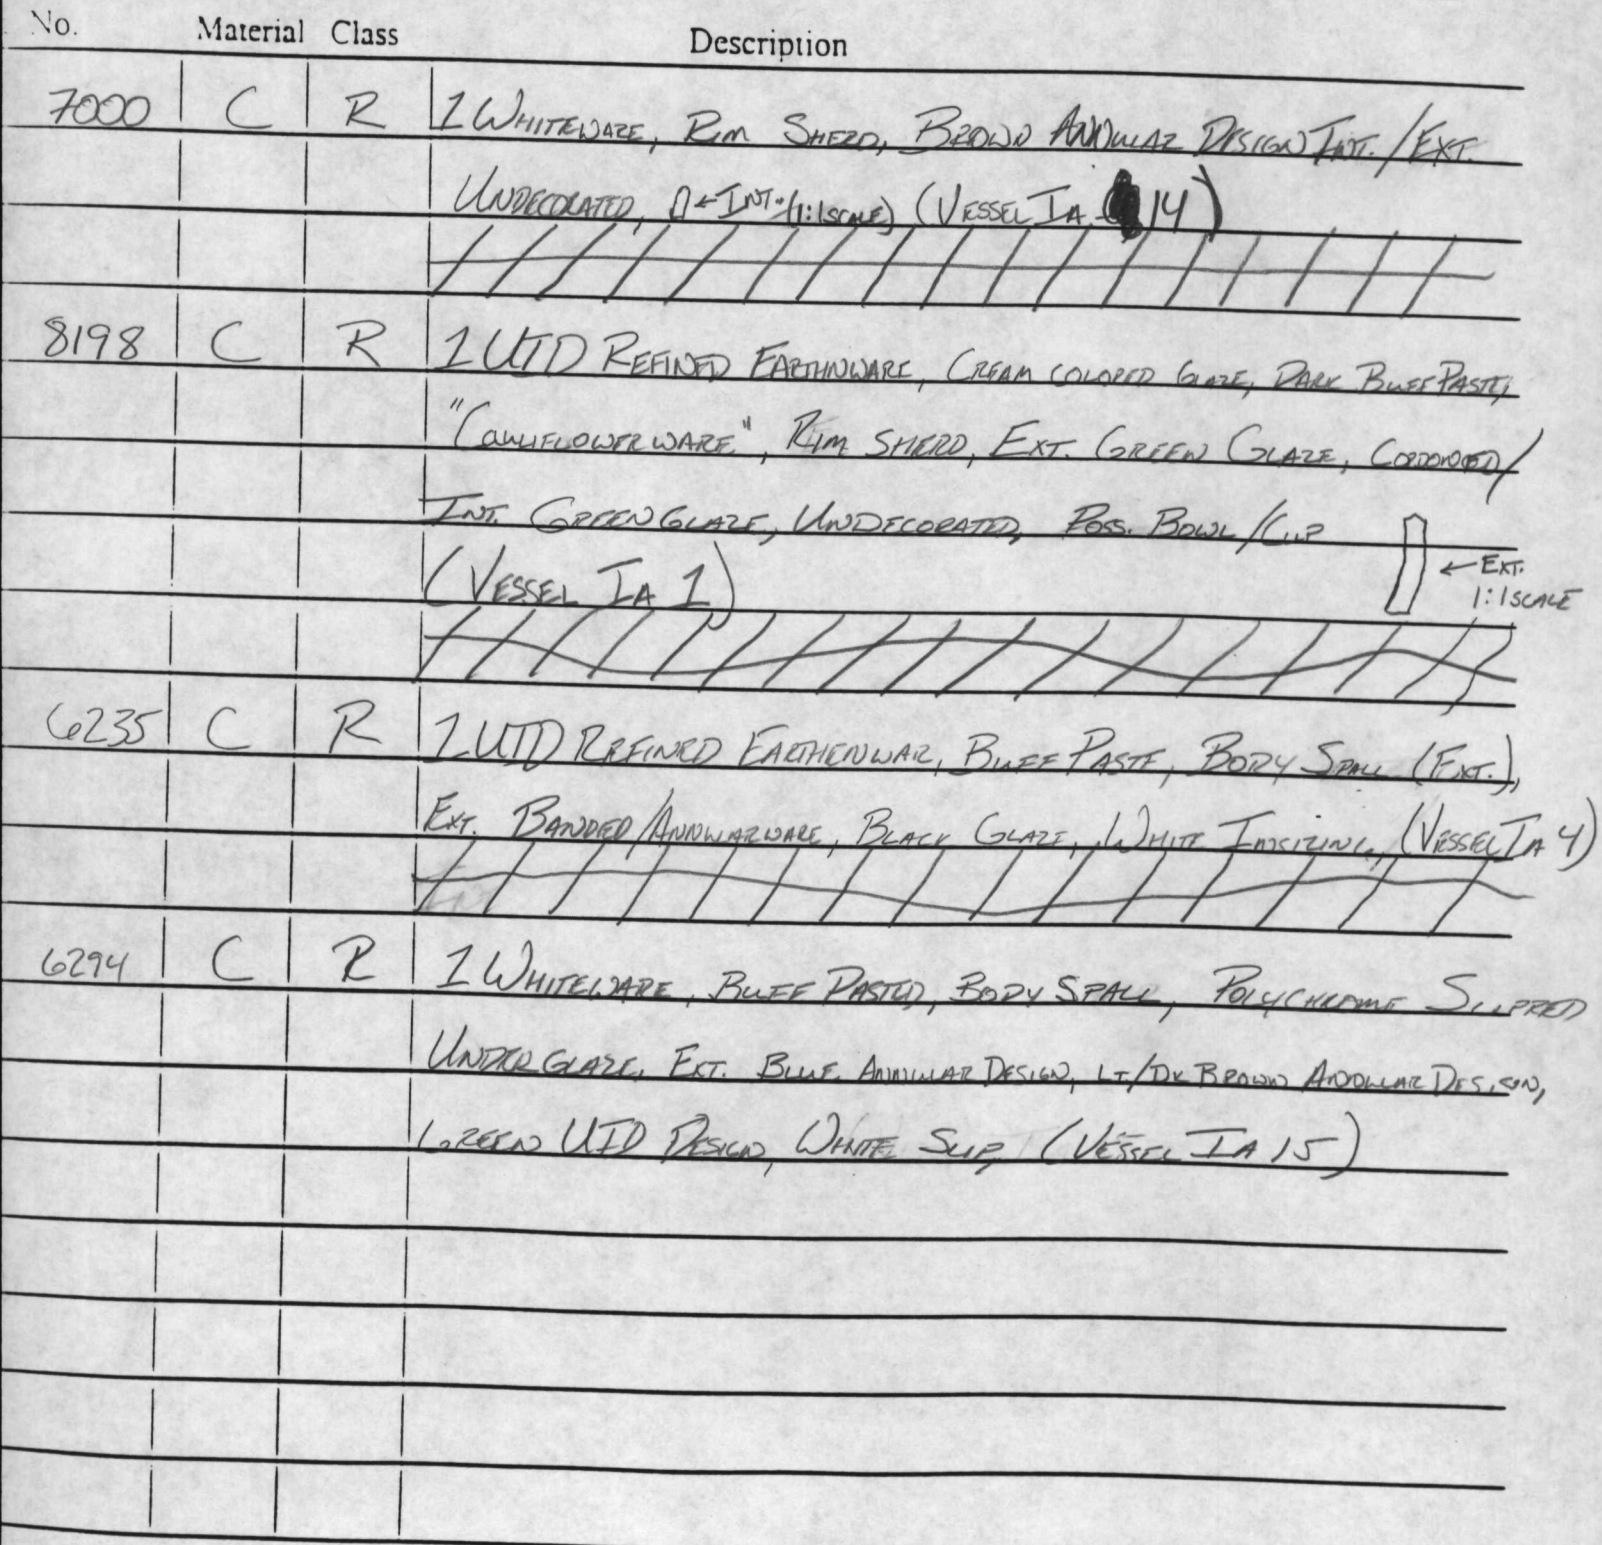 No. Material Class Description
7000 C R 1 WHITEWARE, RIM SHERD, BROWN ANNULAR DESIGN INT. / EXT.
UNDECORATED, ← INT. (1:1 SCALE) (VESSEL IA 14)
8198 C R 1 UID REFINED EARTHNWARE, CREAM COLORED GLAZE, DARK BUFF PASTE,
"CAULIFLOWER WARE", RIM SHERD, EXT. GREEN GLAZE, CORDONED /
INT. GREEN GLAZE, UNDECORATED, POSS. BOWL / CUP
← EXT.
1:1 SCALE
(VESSEL IA 1)
6235 C R 1 UID REFINED EARTHENWAR, BUFF PASTE, BODY SPALL (EXT.),
EXT. BANDED / ANNULARWARE, BLACK GLAZE, WHITE (VESSEL IA 4)
6294 C R 1 WHITEWARE, BUFF PASTED, BODY SPALL, POLYCHROME SLIPPED
UNDERGLAZE, EXT. BLUE ANNULAR DESIGN, LT/DK BROWN ANNULAR DESIGN,
GREEN UID DESIGN, WHITE SLIP, (VESSEL IA 15)